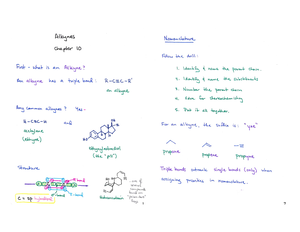 Alkynes
Chapter 10
First - what is an Alkyne?
An alkyne has a triple bond: R-C≡C-R'
an alkyne
Any common alkynes? Yes -
H-C≡C-H and
acetylene
(ethyne)
Ethynylestradiol
(the "pill")
Structure
C = sp hybridized
Nomenclature
Follow the drill:
1. Identify & name the parent chain
2. Identify & name the substituents
3. Number the parent chain
5. Put it all together.
For an alkyne, the suffix is "yne"
propane propene propyne
Triple bonds outrank single bonds (only) when
assigning priorities in nomenclature.